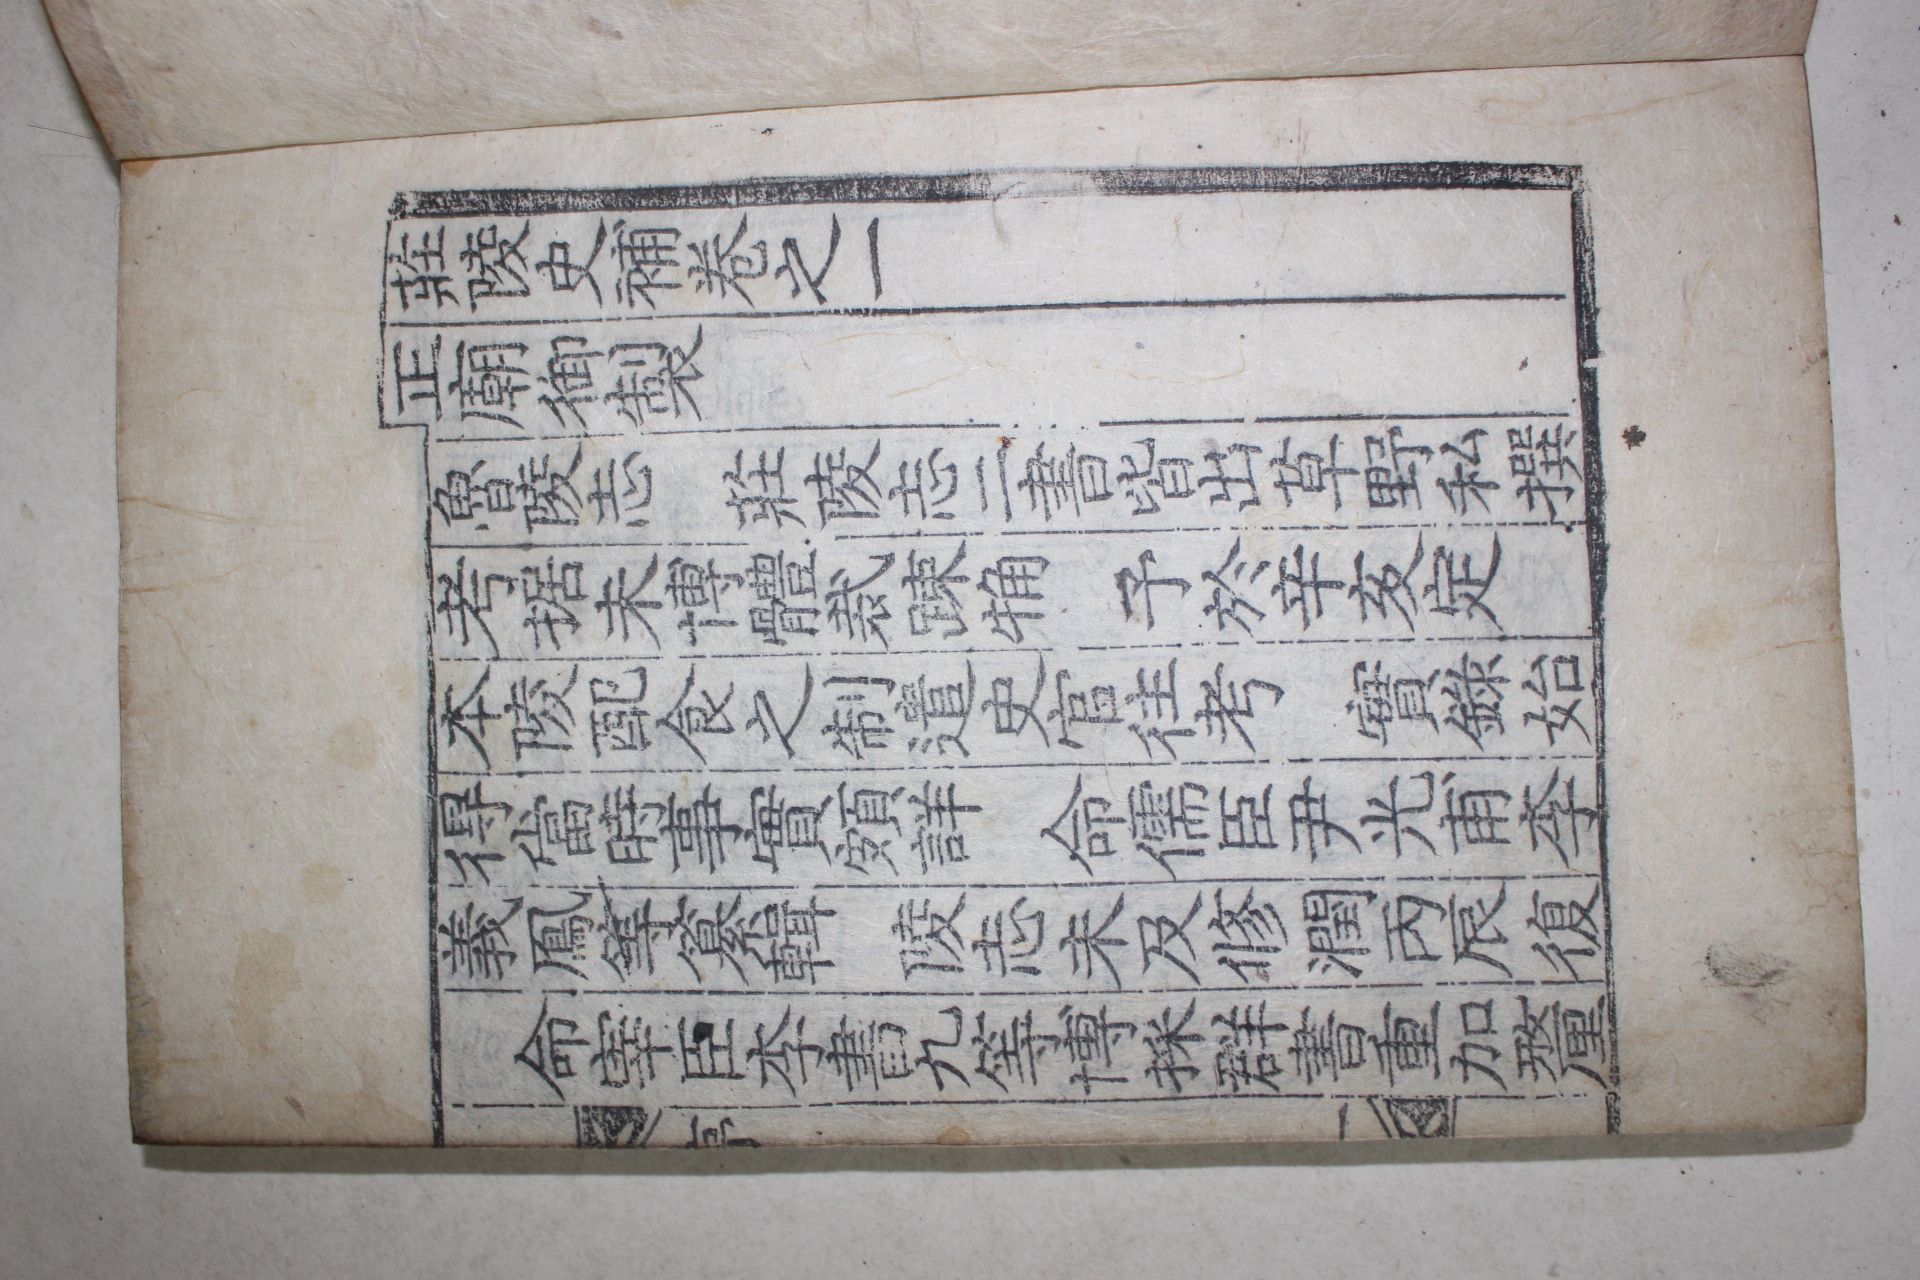 莊陵史補卷之一
正廟御製
魯陵志　莊陵志二書皆出草野私撰
考据未博體裁踈觕　予於辛亥定
本陵配食之制遣史官往考　實錄始
得當時事實頗詳　命儒臣尹光甫李
義鳳等輯　陵志未及修潤丙辰復
命宰臣李書九等博採群書重加釐